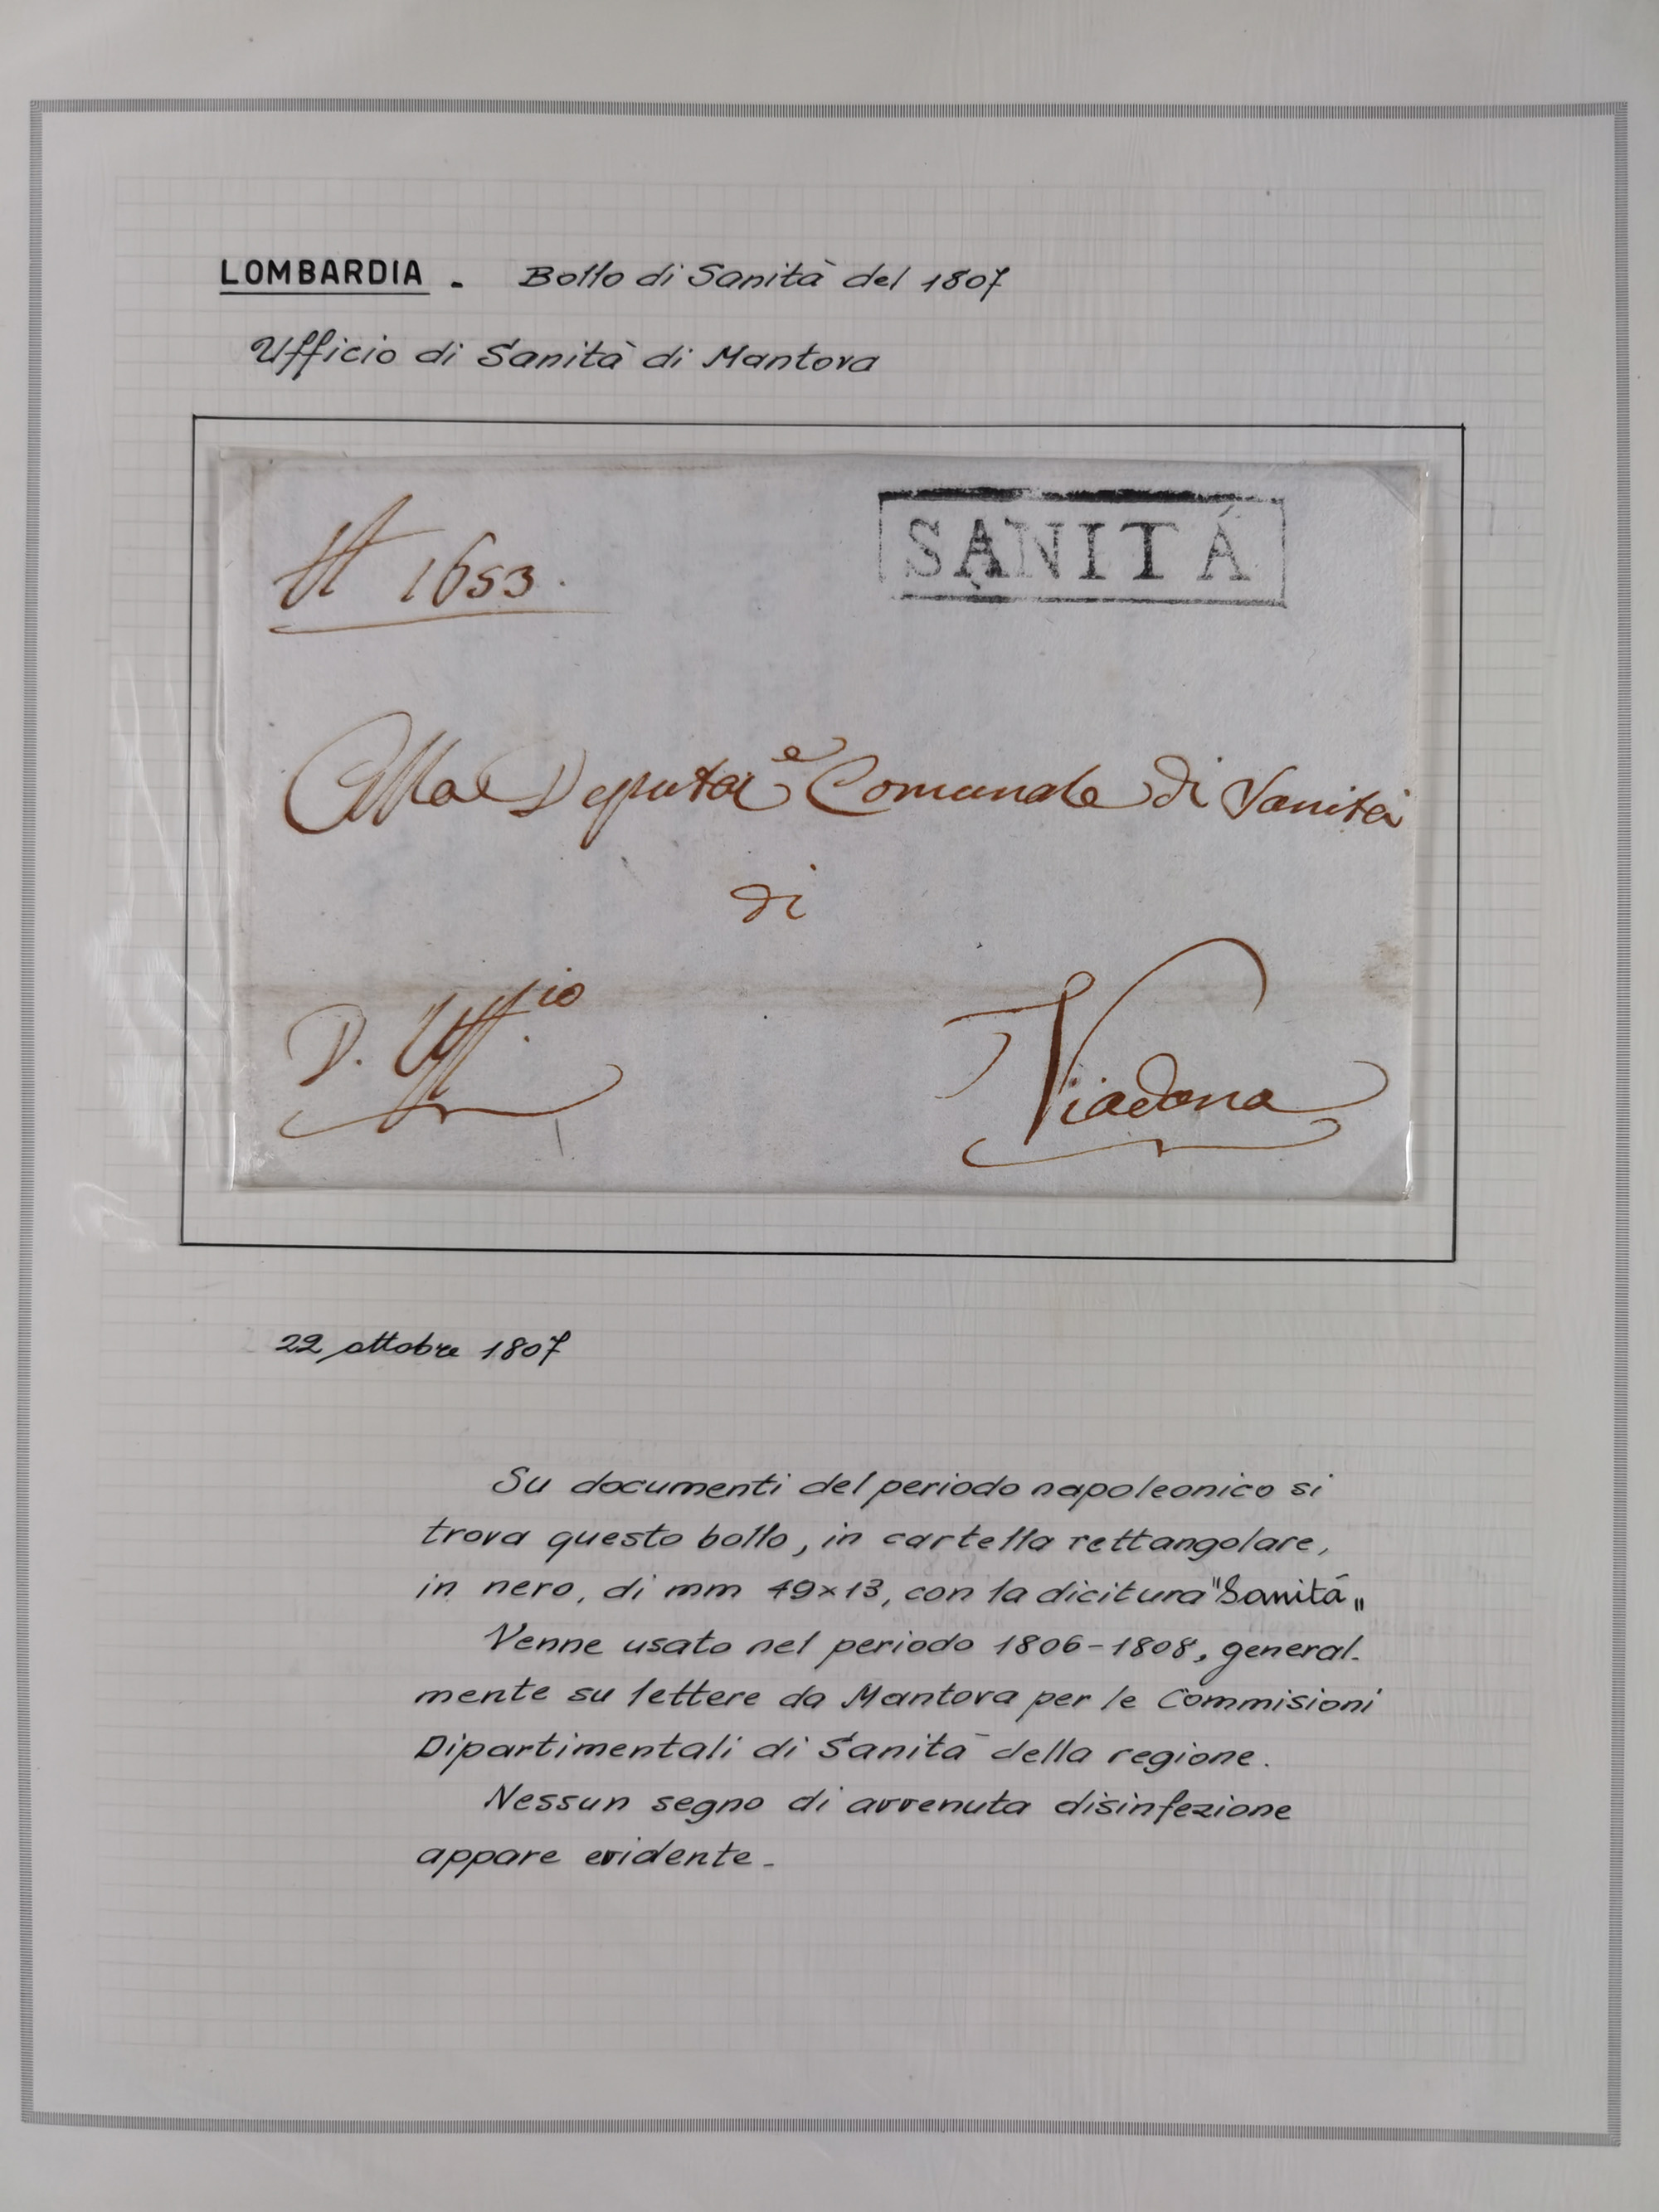 LOMBARDIA - Bollo di Sanità del 1807
Ufficio di Sanità di Mantova
1653.
SANITÁ
Alla Deputaᵉ Comunale di Sanità
di
D. Uffⁱᵒ
Viadana
22 ottobre 1807
Su documenti del periodo napoleonico si
trova questo bollo, in cartella rettangolare,
in nero, di mm 49×13, con la dicitura "Sanitá„
Venne usato nel periodo 1806-1808, general-
mente su lettere da Mantova per le Commisioni
Dipartimentali di Sanità della regione.
Nessun segno di avvenuta disinfezione
appare evidente-